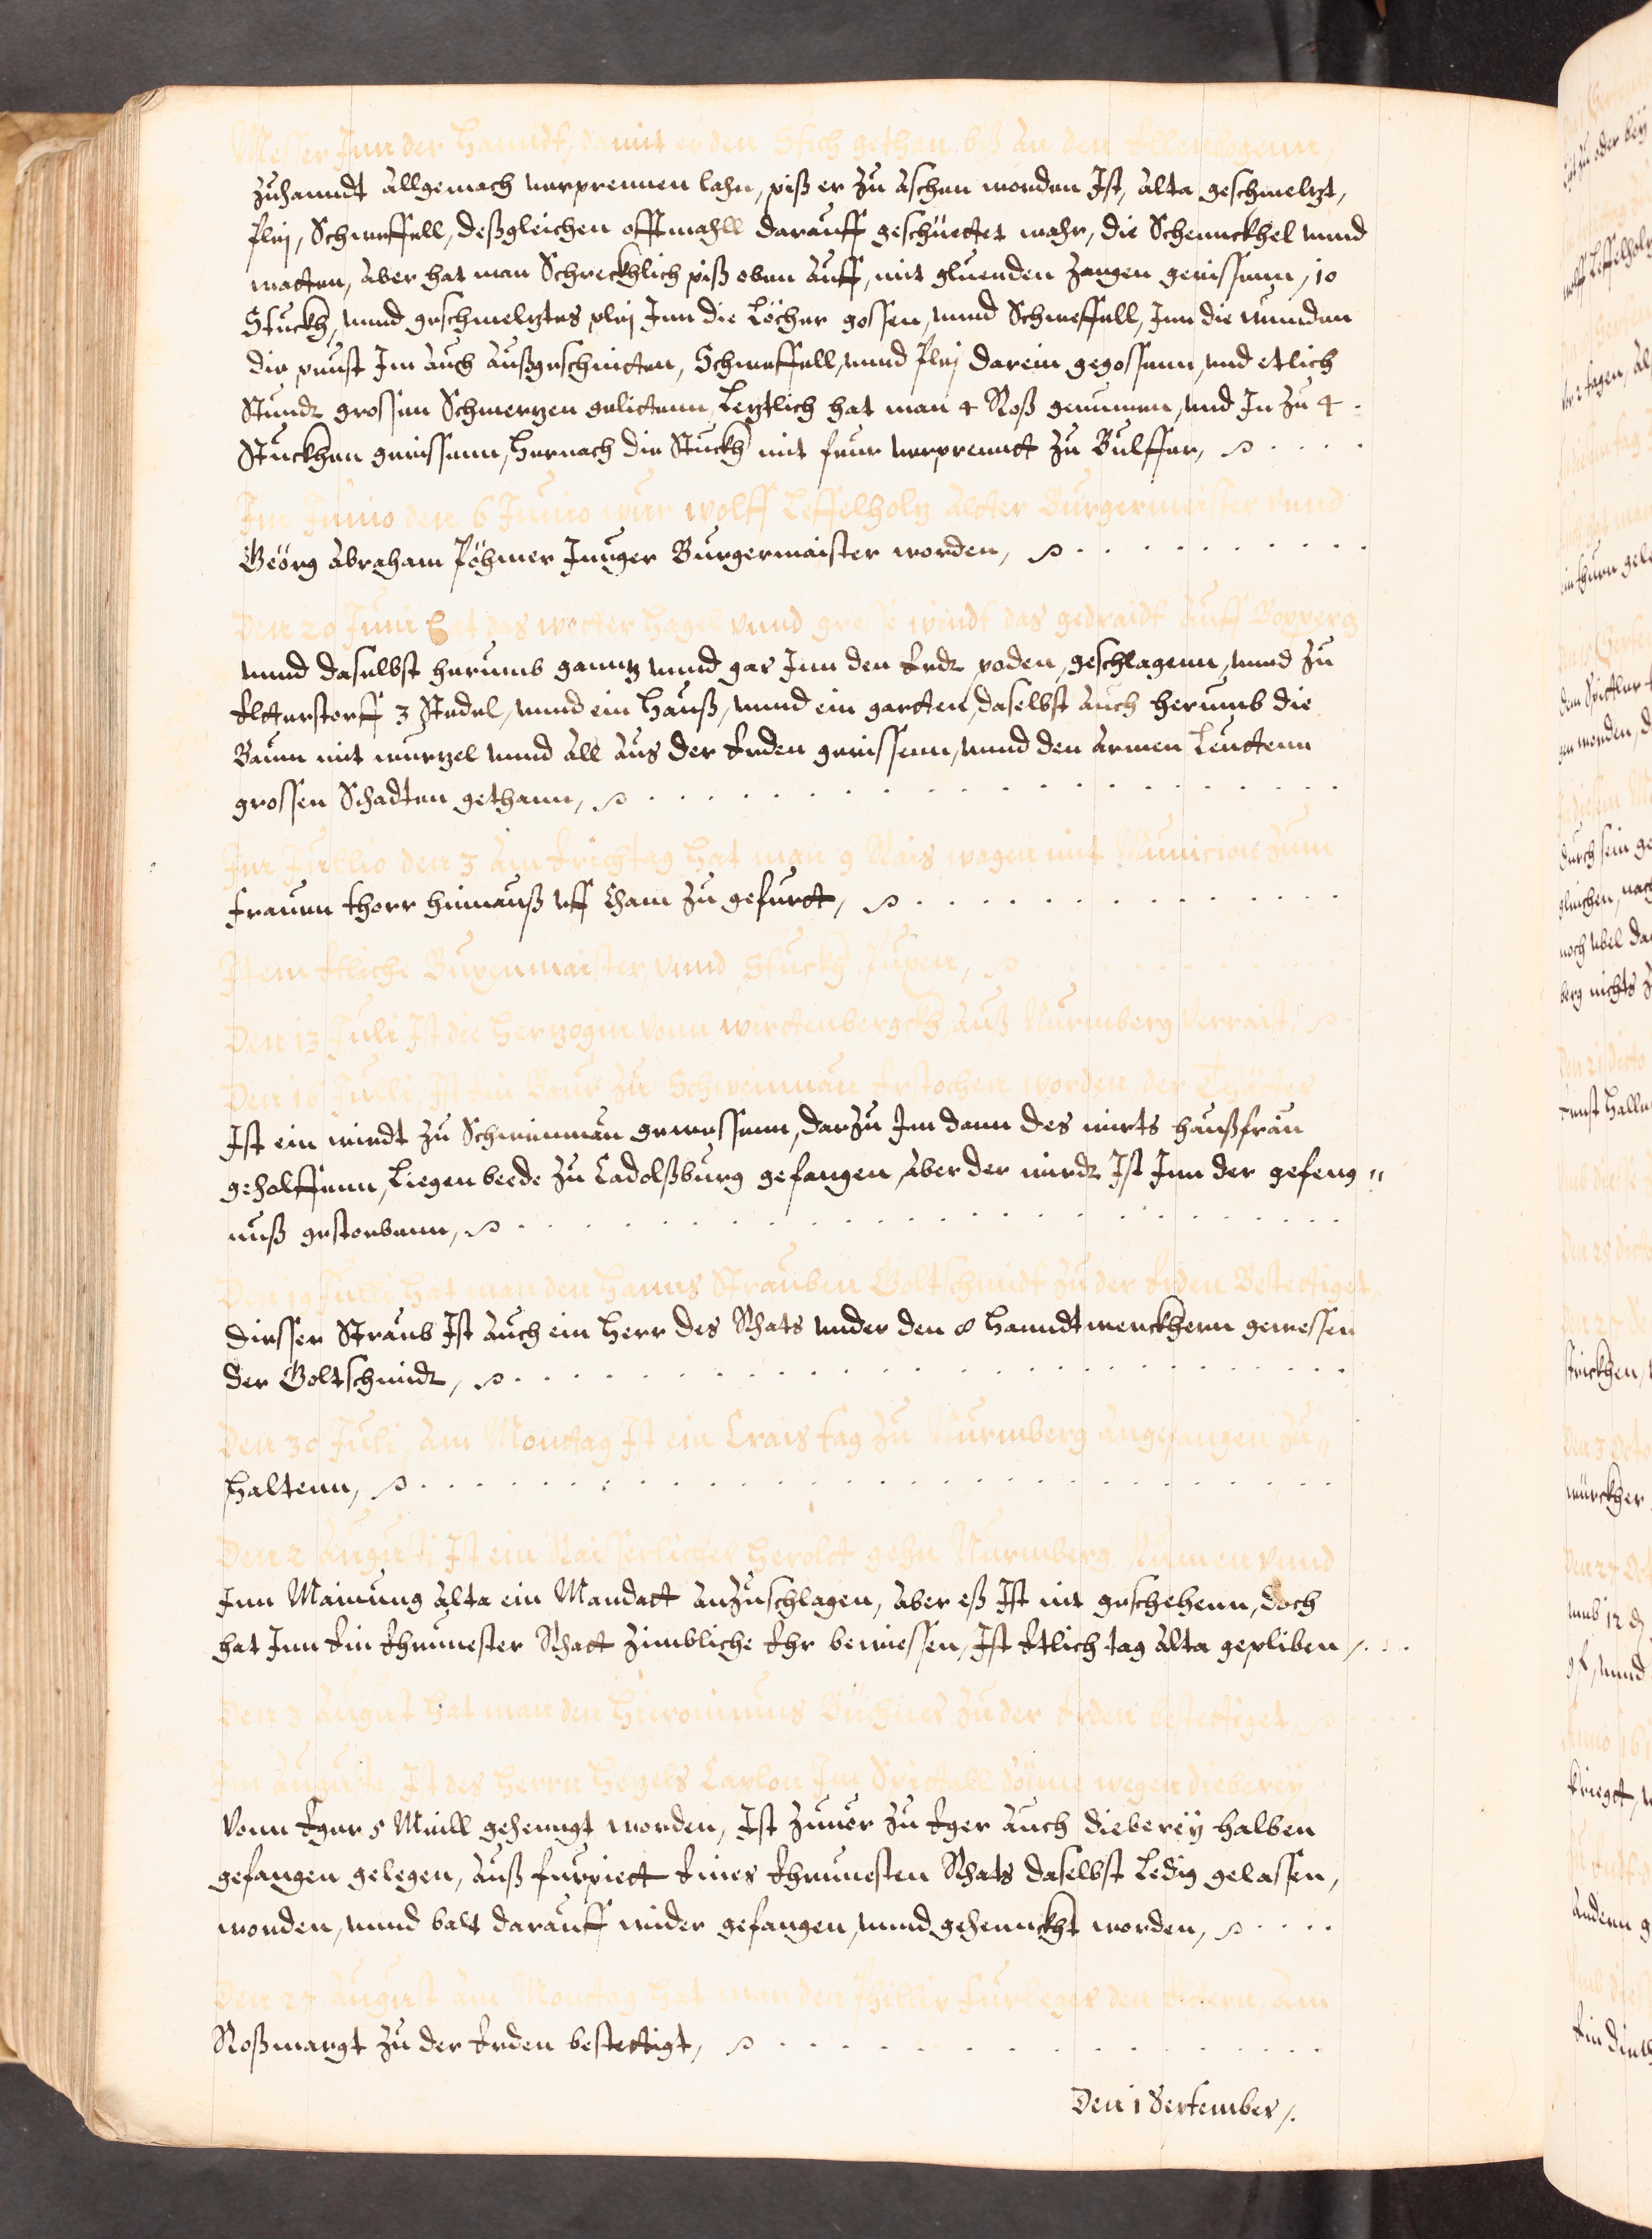 Messer Inn der Hanndt, damit er den Stich gethan, biß an den Ellenbogenn,
zuhanndt allgemach verprennen lahn, piß er zu aschen worden Ist, alta geschmeltzt,
Pley, Schweffell, deßgleichen offtmahll darauff geschüettet wahr, die Schennckhel unnd
watten, aber hat man Schrecklich piß oben auff, mit gluenden Zangen gerissenn, 10
Stuckh, unnd geschmeltztes pley Inn die Löcher gossen, unnd Schweffell, Inn die wunden
die prust Im auch außgeschnitten, Schweffell, unnd Pley darein gegossenn, und etlich
Stundt grossen Schmertzen gelittenn, Letztlich hat man 4 Roß genumen, und In zu 4
Stuckhen gerissenn, Hernach die Stuckh mit feur verprennt zu Bulffer,
Im Junio den 6 Junio wur wolff Leffelholtz alter Burgermeister vnnd
Geörg Abraham Pöhmer Junger Burgermaister worden,
Den 20 Juni hat das wetter Hagel vnnd grosse windt das gedraidt auff Bopperg
unnd daselbst herumb ganntz unnd gar Inn den Erdt poden, geschlagenn, unnd zu
Eltterstorff 3 Stedel, unnd ein Hauß, unnd ein gartten, daselbst auch herumb die
Baum mit wurtzel unnd all aus der Erden gerissenn, unnd den armen Leuttenn
grossen Schadten gethann,
Im Jullio den 3 am Erichtag hat man 9 Rais wagen mit Municion zum
frauen thorr hinnauß uff Cham zu gefurtt,
Item Etliche Buxenmaister, vnnd Stuckh Puxen,
Den 13 Juli Ist die Hertzogin vonn wirttenbergckh, auß Nurmberg verraist,
Den 16 Julli, Ist ein Baur zu Schweinnau Erstochen worden, der Thätter
Ist ein wirdt zu Schweinnau gewessenn, darzu Im dann des wirts haußfrau
geholffenn, Liegen beede zu Cadolßburg gefangen, aber der wirdt Ist Inn der gefeng"
nuß gestorbenn,
Den 19 Julli hat man den Hanns Strauben Goltschmidt zu der Erden Bestettiget,
diesser Straub Ist auch ein Herr des Rhats under den 8 Hanndtwerckhern gewessen
der Goltschmidt,
Den 30 Juli, am Monttag Ist ein Crais tag zu Nurmberg angefangen zu"
haltenn,
Den 2 Augusti Ist ein Kaisserlicher Heroldt gehn Nurmberg kumen vnnd
Inn Mainung alta ein Mandatt anzuschlagen, aber eß Ist nit geschehenn, doch
hat Inn Ein Ehrnuester Rhatt zimbliche Ehr bewiessen, Ist Etlich tag alta gepliben
Den 3 August hat man den Hieronimus Buchner zu der Erden bestettiget,
Im Augusto, Ist des Herrn Hetzels Caplon Im Spittall Sönne wegen dieberey
vonn Eger 5 Meill gehenngt worden, Ist zuuor zu Eger auch dieberey halben
gefangen gelegen, auß furpiett Eines Ehrnuesten Rhats daselbst Ledig gelassen,
worden, unnd balt darauff wider gefangen, unnd gehennckht worden,
Den 27 August am Monttag hat man den Phillip furleger den Eltern, am
Roßmargt zu der Erden bestettigt,
Den 1 September